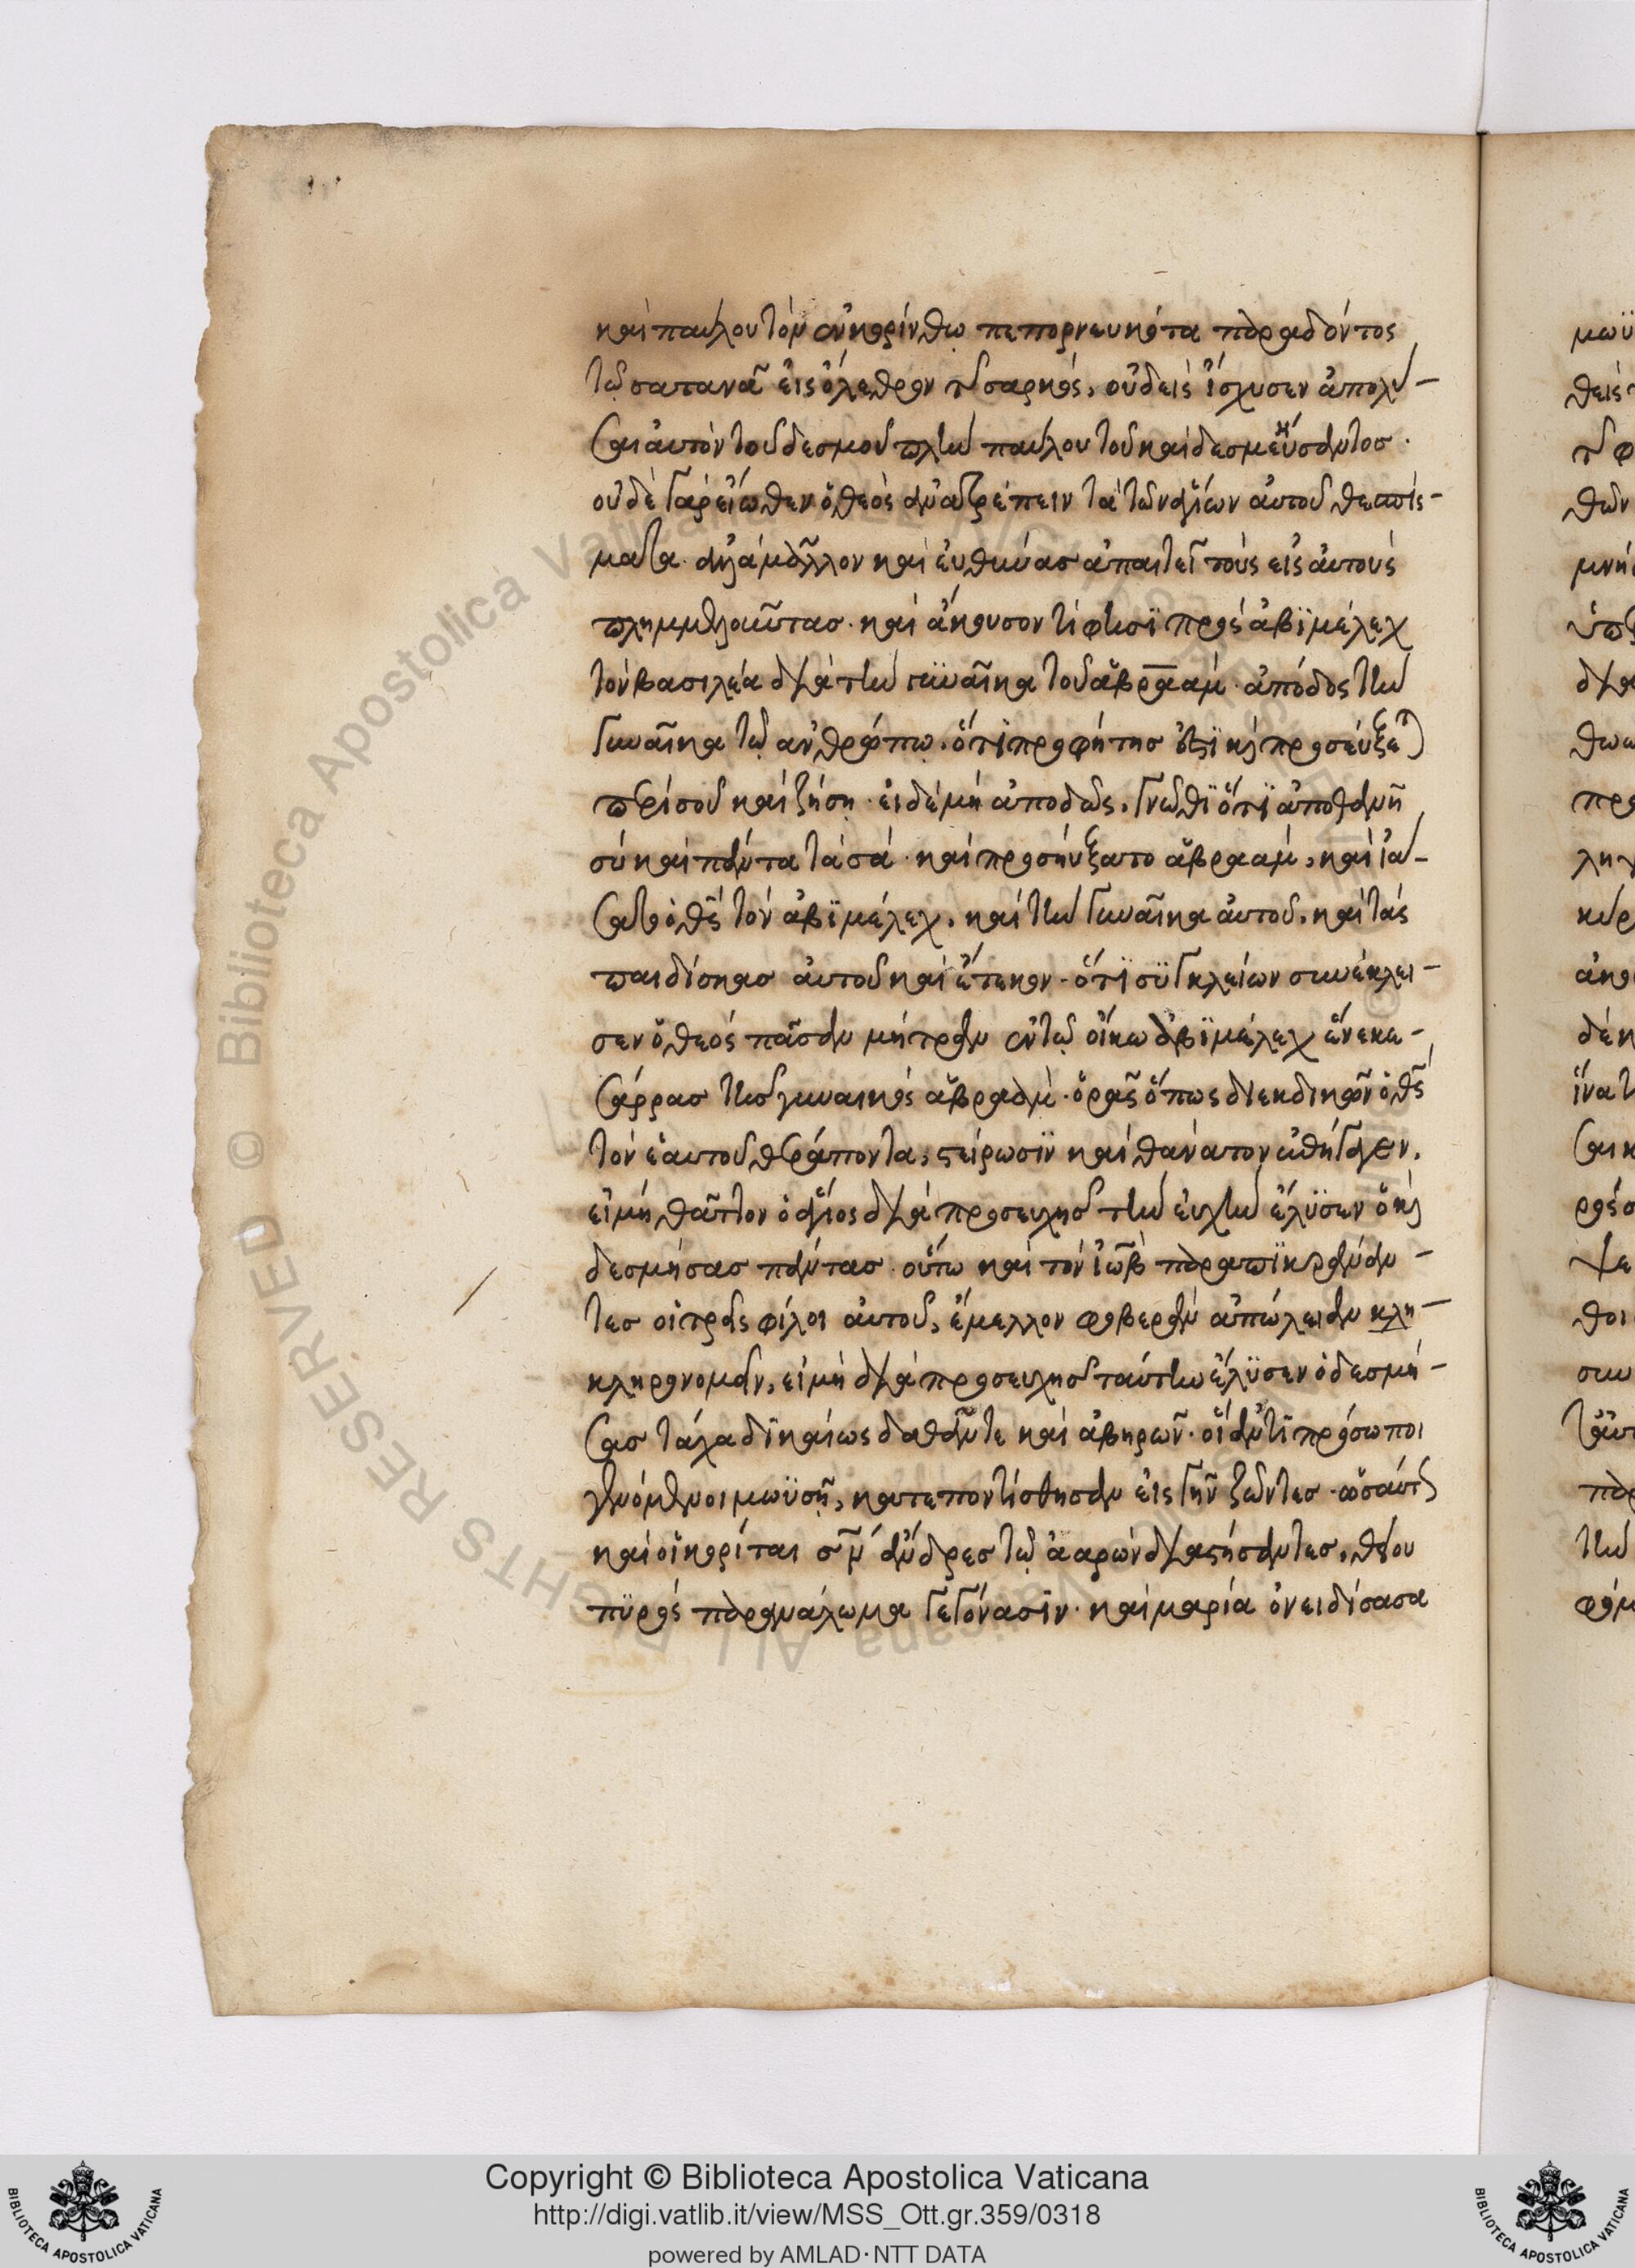 καὶ παύλου τὸν ἐν κορίνθω πεπορνευκότα παραδόντος
τῶ σατανᾶ εἰς ὄλεθρον τῆς σαρκός, οὐδεὶς ἴσχυσεν ἀπολῦ-
σαι αὐτὸν τοῦ δεσμοῦ πλὴν παύλου τοῦ καὶ δεσμεύσαντος·
οὐδὲ γὰρ εἴωθεν ὁ θεὸς ἀνατρέπειν τὰ τῶν ἁγίων αὐτοῦ θεσπίσ-
ματα· ἀλλὰ μᾶλλον καὶ εὐθύνας ἀπαιτεῖ τοὺς εἰς αὐτοὺς
πλημμελοῦντας· καὶ ἄκουσον τί φησὶ πρὸς ἀβϊμέλεχ
τὸν βασιλέα διὰ τὴν γυναῖκα τοῦ ἀβραάμ· ἀπόδος τὴν
γυναῖκα τῶ ἀνθρώπω· ὅτι προφήτης ἐστὶ καὶ προσεύξεται
περὶ σοῦ καὶ ζήση· εἰ δὲ μὴ ἀποδῶς, γνῶθϊ ὅτϊ ἀποθανῆ
σὺ καὶ πάντα τὰ σά· καὶ προσηύξατο ἀβραάμ, καὶ ἰά-
σατο ὁ θς τὸν ἀβϊμέλεχ, καὶ τὴν γυναῖκα αὐτοῦ, καὶ τὰς
παιδίσκας αὐτοῦ καὶ ἔτεκον· ὅτϊ συγκλείων συνέκλει-
σεν ὁ θεὸς πᾶσαν μήτραν ἐν τῶ οἴκω ἀβϊμέλεχ ἕνεκα-
σάρρας τῆς γυναικὸς ἀβραάμ· ὁρᾶς ὅπως διεκδικῶν ὁ θς
τὸν ἑαυτοῦ θεράποντα, στείρωσϊν καὶ θάνατον
εἰ μὴ θᾶττον ὁ ἅγιος διὰ προσευχῆς τὴν εὐχὴν ἔλϋσεν ὁ καὶ
δεσμήσας πάντας· οὕτω καὶ τὸν ἰὼβ παραπϊκράναν-
τες οἱ τρεῖς φίλοι αὐτοῦ, ἔμελλον φοβερὰν ἀπώλειαν κλη-
κληρονομεῖν, εἰ μὴ διὰ προσευχῆς ταύτην ἔλϋσεν ὁ δεσμή-
σας τάχα δϊκαίως δαθάν τε καὶ ἀβηρὼν· οἱ ἀντϊπρόσωποι
γενόμενοι μωϋσῆ, κατεποντίσθησαν εἰς γῆν ζῶντες· ὡσαύτως
καὶ οἱ κορίται σν ἄνδρες τῶ ἀαρὼν διαστήσαντες, θείου
πϋρὸς παρανάλωμα γεγόνασϊν· καὶ μαρία ὀνειδίσασα